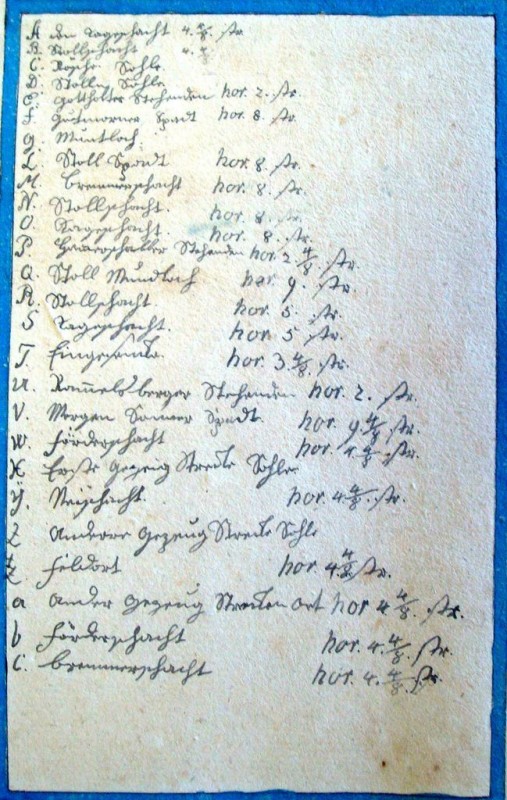 A den Tageschacht 4. 4/8. str.
B. Stollschacht 4. 4/8
C. Rösche Sohle
D. Stolln Sohle
E. Gotthelfer Stehenden hor. 2. str.
F. Gutmorner Spadt hor. 8. str.
G. Muntloch.
L. Stoll Spadt hor. 8. str.
M. Bremmerschacht hor. 8. str.
N. Stollschacht. hor. 8. str.
O. Tageschacht. hor. 8. str.
P. Stehenden hor. 2 4/8. str.
Q. Stoll Mundloch hor. 9. str.
R. Stollschacht. hor. 5. str.
S Tageschacht. hor. 5 str.
T. hor. 3. 4/8. str.
U. Rammelsberger Stehenden hor. 2. str.
V. Morgen Sonner Spadt. hor. 9. 4/8. str.
W. Förderschacht hor. 4 4/8. str.
X Erste Gezeug Strecke Sohle.
Y. hor. 4 4/8. str.
Z Andere Gezeug Strecke Sohle
Feldort hor. 4. 4/8 str.
a Ander Gezeug Strecken ort hor 4 4/8. str.
b Förderschacht hor. 4. 4/8. str.
c. Bremmerschacht hor. 4. 4/8. str.